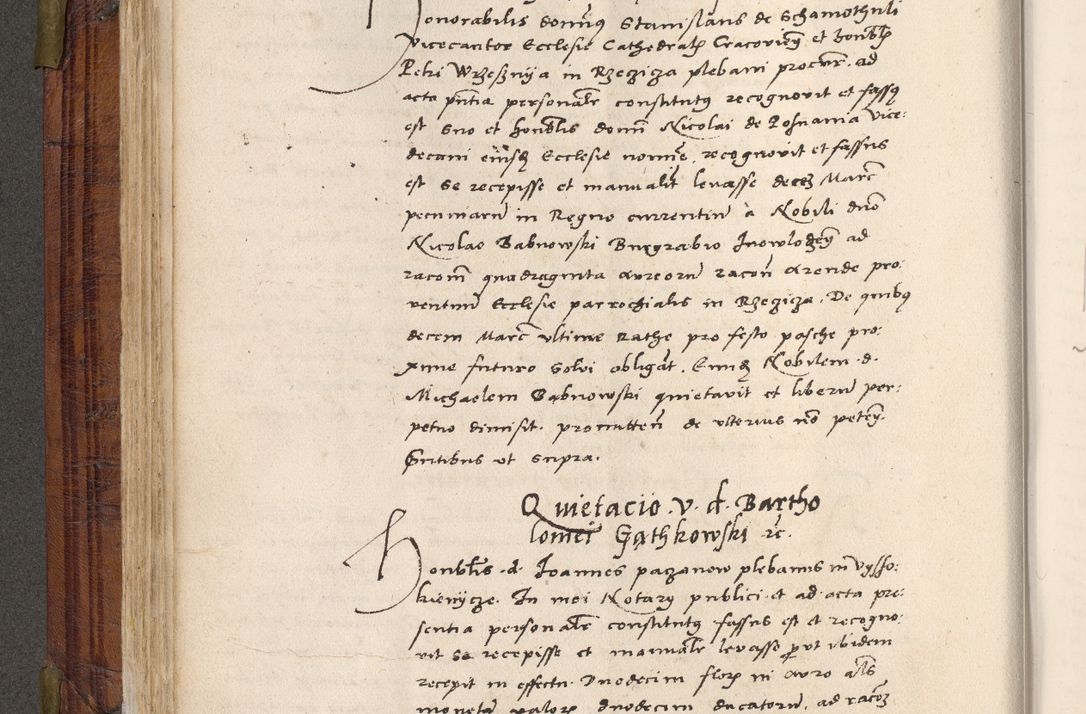 Honorabilis domnꝰ Stanislaus de Schamothuli
Vicecantor Ecclesie Cathedralꝭ Cracovień et honbłꝭ
Petri Wrzesznÿa in Rzezicza plebani procur. ad
acta pñtia personałr constitutꝰ recognovit et fassꝰ
est suo et honbłis domĩ Nicolai de Posnania Vice:
decani eiusdꝫ Ecclesie nomine, recognovit et fassus
est se recepisse et manualit̃ levasse decem Marc̃
pecuniarũ in Regno currentiũ à Nobili dño
Nicolao Babnowski Burgrabio Inowlodzeń ad
racom̃ quadraginta aureorũ racoñ arende pro:
ventuũ Ecclesie parrochialis in Rzeziza. De quibꝰ
decem Marc̃ ultime Rathe pro festo pasche pro:
xime futuro solvi obligat̃. Eundꝫ Nobilem .d.
Michaelem Babnowski quietavit et liberũ per:
petuo dimisit. promitteñ de ulterius nõ peteñ.
Pñtibus ut supra.
Quietacio .V. d. Bartho
lomei Gąthkowski ꝛc̃.
Honbłis .d. Joannes paczanow plebanus in Vÿsso:
kienÿcze. In mei Notarÿ publici et ad acta pre:
sentia personałr constitutꝰ fassus est et recogno:
vit se recepisse et manuałr levasse ꝓut ibidem
recepit in effectu. Duodecim florꝭ in auro ałs
monetã valorꝭ duodecim ducatorũ, ad racoꝫ